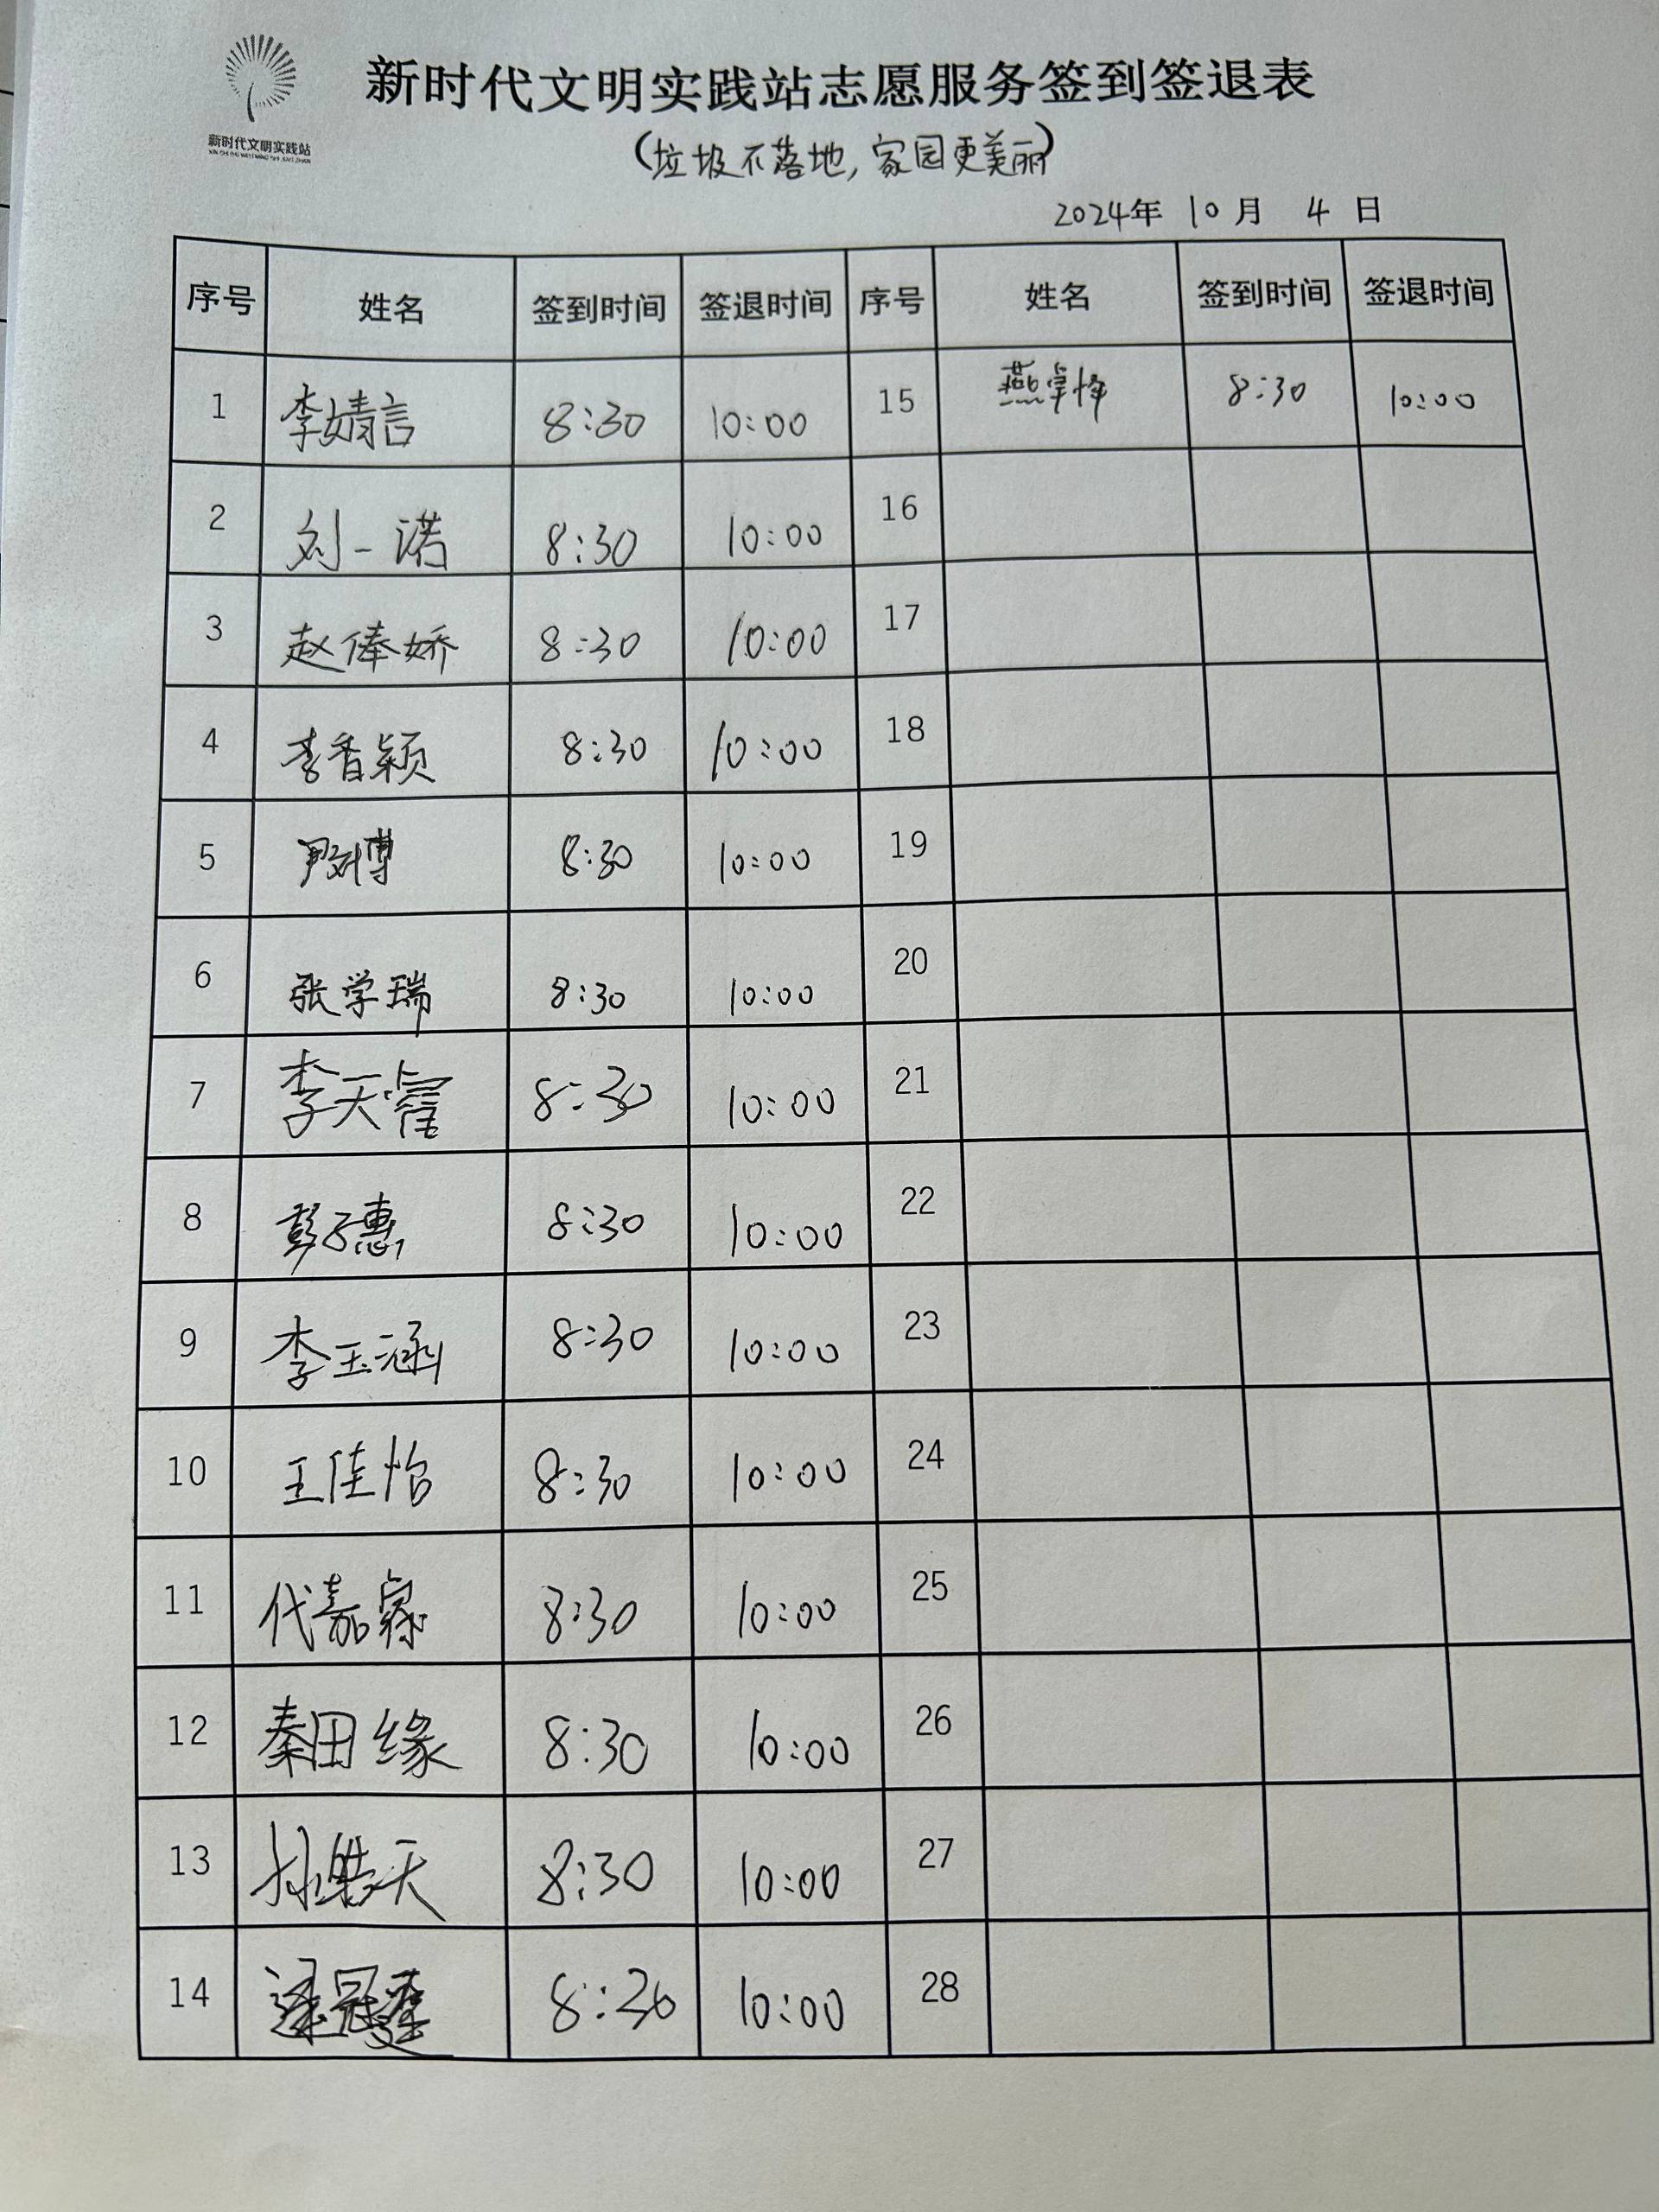 新时代文明实践站
新时代文明实践站志愿服务签到签退表
(垃圾不落地,家园更美丽)
2024年 10月 4日
序号 姓名 签到时间 签退时间 序号 姓名 签到时间 签退时间
1 李婧言 8:30 10:00 15 燕卓 8:30 10:00
2 刘一诺 8:30 10:00 16
3 赵俸娇 8:30 10:00 17
4 李香颖 8:30 10:00 18
5 博 8:30 10:00 19
6 张学瑞 8:30 10:00 20
7 李天睿 8:30 10:00 21
8 彭子惠 8:30 10:00 22
9 李玉涵 8:30 10:00 23
10 王佳怡 8:30 10:00 24
11 代嘉 8:30 10:00 25
12 秦田缘 8:30 10:00 26
13 孙 天 8:30 10:00 27
14 冠 8:30 10:00 28